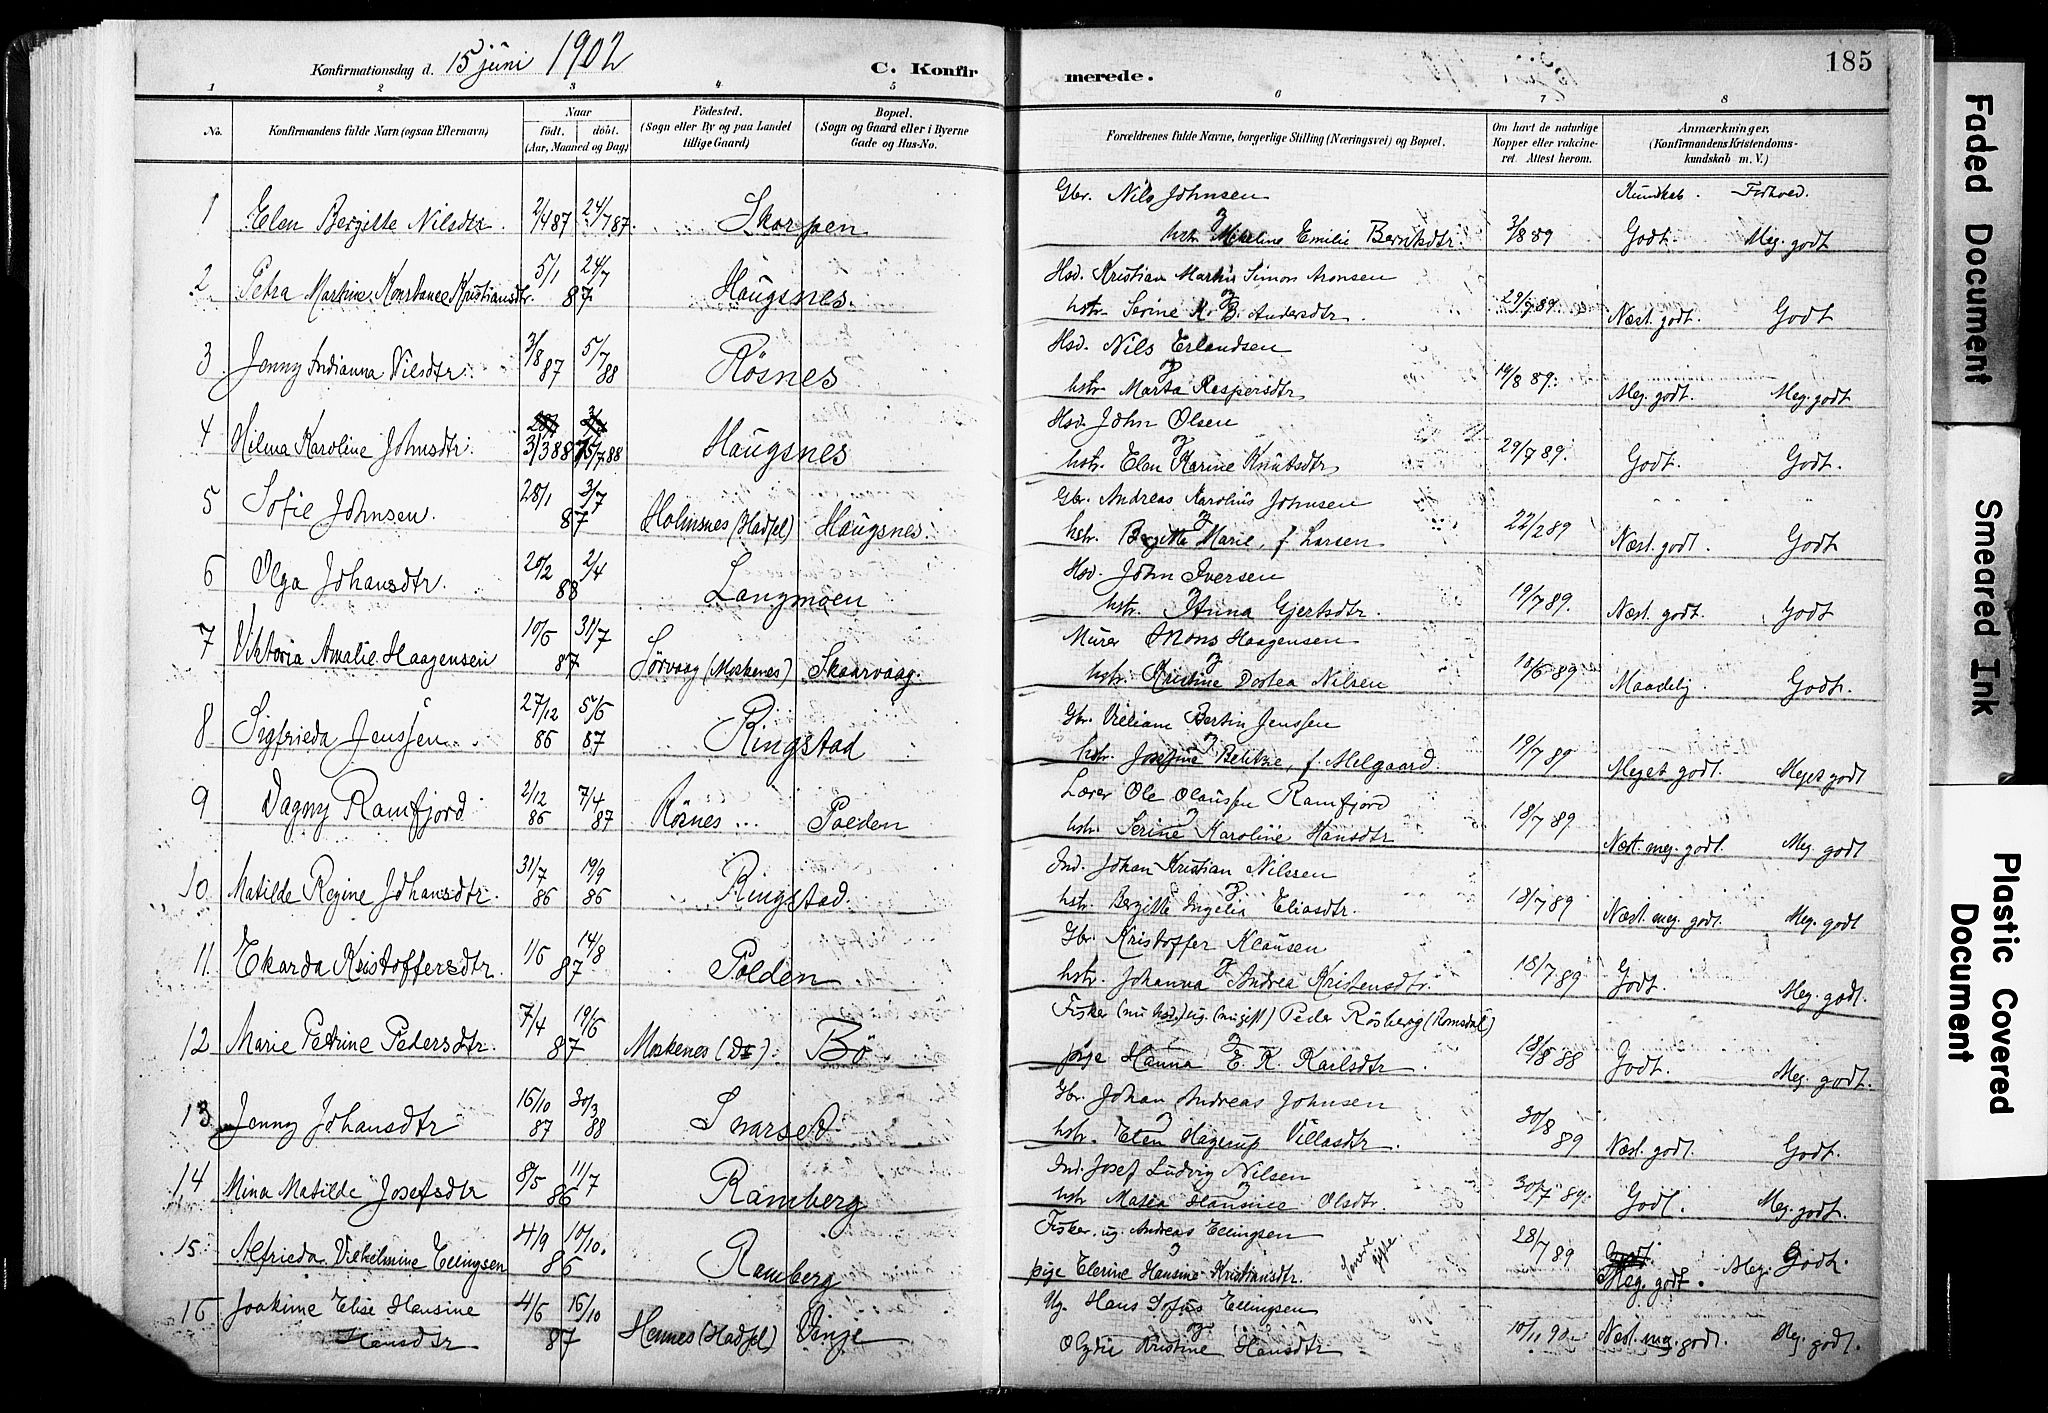 Konfirmationsdag d. 15 juni 1902 C. Konfirmerede. 185
1 2 3 4 5 6 7 8
No. Konfirmandens fulde Navn (ogsaa Efternavn) Naar født. døbt. (Aar, Maaned og Dag) Fødested. (Sogn eller By og paa Landet tillige Gaard) Bopæl. (Sogn og Gaard eller i Byerne Gade og Hus-No. Forældrenes fulde Navne, borgerlige Stilling (Næringsvei) og Bopæl. Om havt de naturlige Kopper eller vakcineret. Attest herom. Anmærkninger, (Konfirmandens Kristendomskundskab m. V.)
Kundskab. Forhold.
1 Elen Bergitte Nilsdtr. 2/4 87 24/7 87. Skarpen Gbr. Nils Johnsen
og hstr. Emilie Berntsdtr. 3/8 89 Godt. Meg. godt
2 Petra Martine Konstance Kristiansdtr. 5/1 24/7 87 Haugsnes. Hsd. Kristian Martin Simon Aronsen
og hstr. Serine K. B. Andersdtr. 29/7 89. Næst. godt. Godt
3 Jenny Indianna Nilsdtr. 3/8 87 5/7 88 Røsnes Hsd. Nils Erlandsen
og hstr. Marta Respersdtr. 19/8 89. Meg. godt. Meg. godt
4 Hilma Karoline Johnsdtr. 3/3 88 15/7 88 Haugsnes Hsd. John Olsen
og hstr. Elen Karine Knutsdtr 29/7 89. Godt. Godt.
5 Sofie Johnsen. 28/1 3/7 87 Holmsnes (Hadsel) Haugsnes. Gbr. Andreas Karolius Johnsen
og hstr. Bergitte Marie, f. Larsen 22/2 89 Næst. godt. Godt
6 Olga Johansdtr. 20/2 2/4 88 Langmoen Hsd. John Iversen
og hstr. Anna Gjertsdtr. 19/7 89. Næst. godt. Godt
7 Viktoria Amalie Haagensen 10/6 31/7 87 Sørvaag (Moskenes) Skaarvaag. Murer Mons Haagensen
og hstr. Kristine Dortea Nilsen 10/6 89 Maadelig. Godt.
8 Sigfrieda Jenssen 27/12 86 5/6 87 Ringstad Gbr. Villiam Bertin Jenssen
og hstr. Josefine Belitzie, f. Melgaard. 19/7 89 Meget godt. Meget godt
9 Dagny Ramfjord 2/12 86 7/4 87 Røsnes Polden Lærer Ole Olaussen Ramfjord
og hstr. Serine Karoline Hansdtr 18/7 89. Næst. meg. godt. Meg. godt
10 Matilde Regine Johansdtr. 31/7 86 19/9 86 Ringstad. Ind. Johan Kristian Nilssen
og hstr. Bergitte Ingelia Eliasdtr. 18/7 89 Næst. meg. godt. Meg. godt
11. Ekarda Kristoffersdtr. 1/6 14/8 87 Polden Gbr. Kristoffer Klausen
og hstr. Johanna Andrea Kristensdtr. 18/7 89 Godt. Meg. godt.
12 Marie Petrine Pedersdtr. 7/4 19/6 87 Moskenes Bø Fisker (nu hsd.) ug. (nu gift) Peder Røsberg (Romsdal)
og pige Hanna E. K. Karlsdtr. 18/8 88 Godt. Meg. godt.
13 Jenny Johansdtr 16/10 87 30/3 88 Svarsed. Gbr. Johan Andreas Johnsen
og hstr. Elen Hagerup Villasdtr. 30/8 89 Næst. godt. Godt.
14 Mina Matilde Josefsdtr 8/5 11/7 86 Ramberg Ind. Josef Ludvig Nilsen
og hstr Matea Hansine Olsdtr. 30/7 89. Godt. Meg. godt.
15 Alfrieda Vilhelmine Ellingsen 4/9 10/10. 86 Ramberg Fisker ug. Andreas Ellingsen
og pige Elerine Hansine Kristiansdtr. Senere gifte. 28/7 89 Godt. Meg. godt. Meg. Godt.
16 Joakime Elise Hansine 4/6 16/10 87 Hennes (Hadsel) Vinje Ug. Hans Sofus Ellingsen
Hansdtr og Olydie Kristine Hansdtr 10/11 90. Næst. meg. godt. Meg. godt.
Faded Document
Smeared Ink
Plastic Covered Document